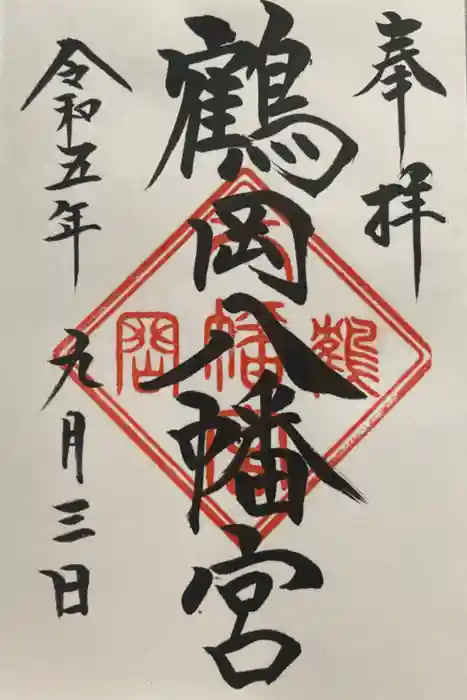 奉拝
鶴岡八幡宮
鶴
八幡宮
岡
令和五年九月三日